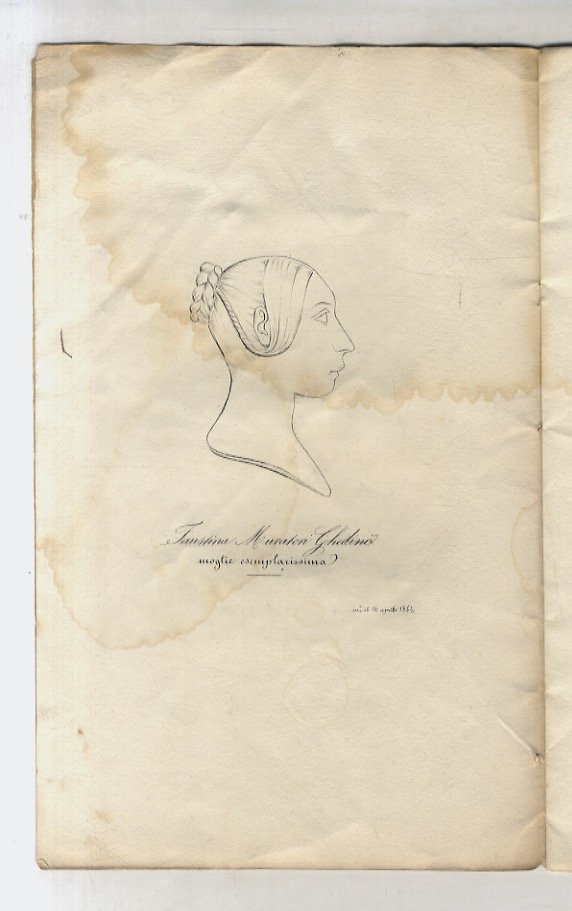 Faustina Muratori Ghedini
moglie esemplarissima
aprile 1844